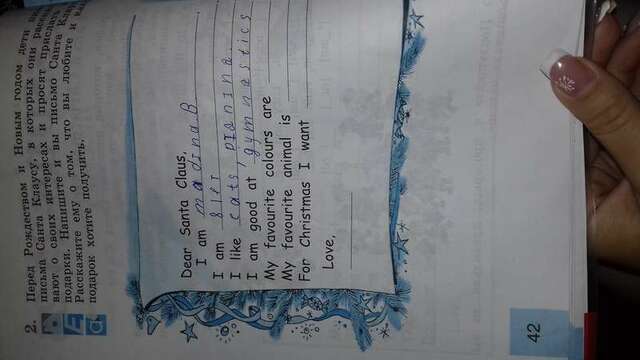 2. Перед Рождеством и Новым годом дети
письма Санта Клаусу, в которых они расск
вают о своих интересах и просят прислать
подарки. Напишите и вы письмо Санта Кла
Расскажите ему о том, что вы любите и
подарок хотите получить.
Dear Santa Claus,
I am madina B
I am
I like cats,
I am good at gymnastics
My favourite colours are
My favourite animal is
For Christmas I want
Love,
42